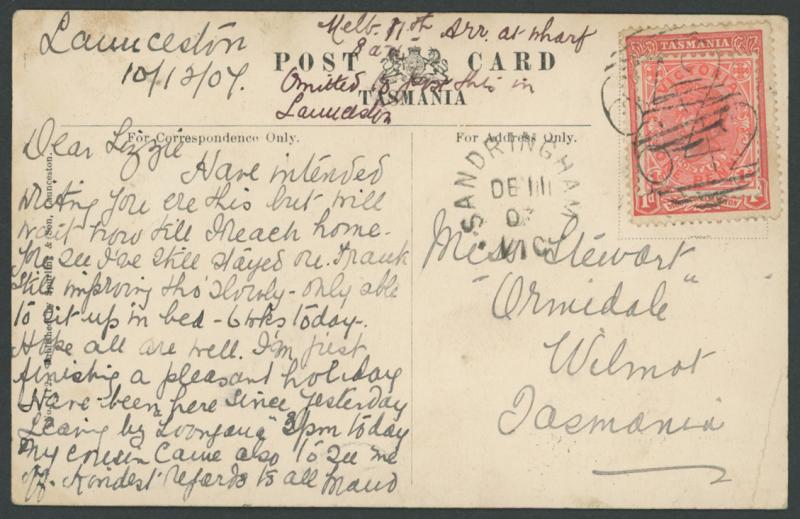 Launceston
10/12/07.
Melb. 11th Arr. at wharf
8 a.m.
Omitted to post this in
Launceston
POST CARD
TASMANIA
For Correspondence Only.
For Address Only.
Dear Lizzie
Have intended
writing you ere this but will
wait now till I reach home.
You see I've still stayed on. Frank
still improving tho' slowly - only able
to sit up in bed - 6 wks today.
Hope all are well. I'm just
finishing a pleasant holiday
Have been here since yesterday
Leaving by "Loongana" 3pm today
my cousin came also to see me
off. Kindest regards to all Maud
Miss Stewart
"Ormidale"
Wilmot
Tasmania
SANDRINGHAM
DE 11
07
VIC
TASMANIA
VICTORIA
1d
& Son, Launceston.